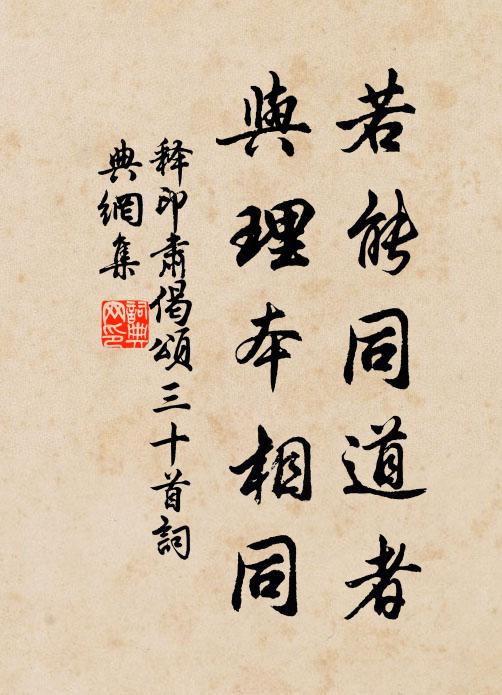 若能同道者
與理本相同
释印肃偈頌三十首詞
典網集
詞典
网印